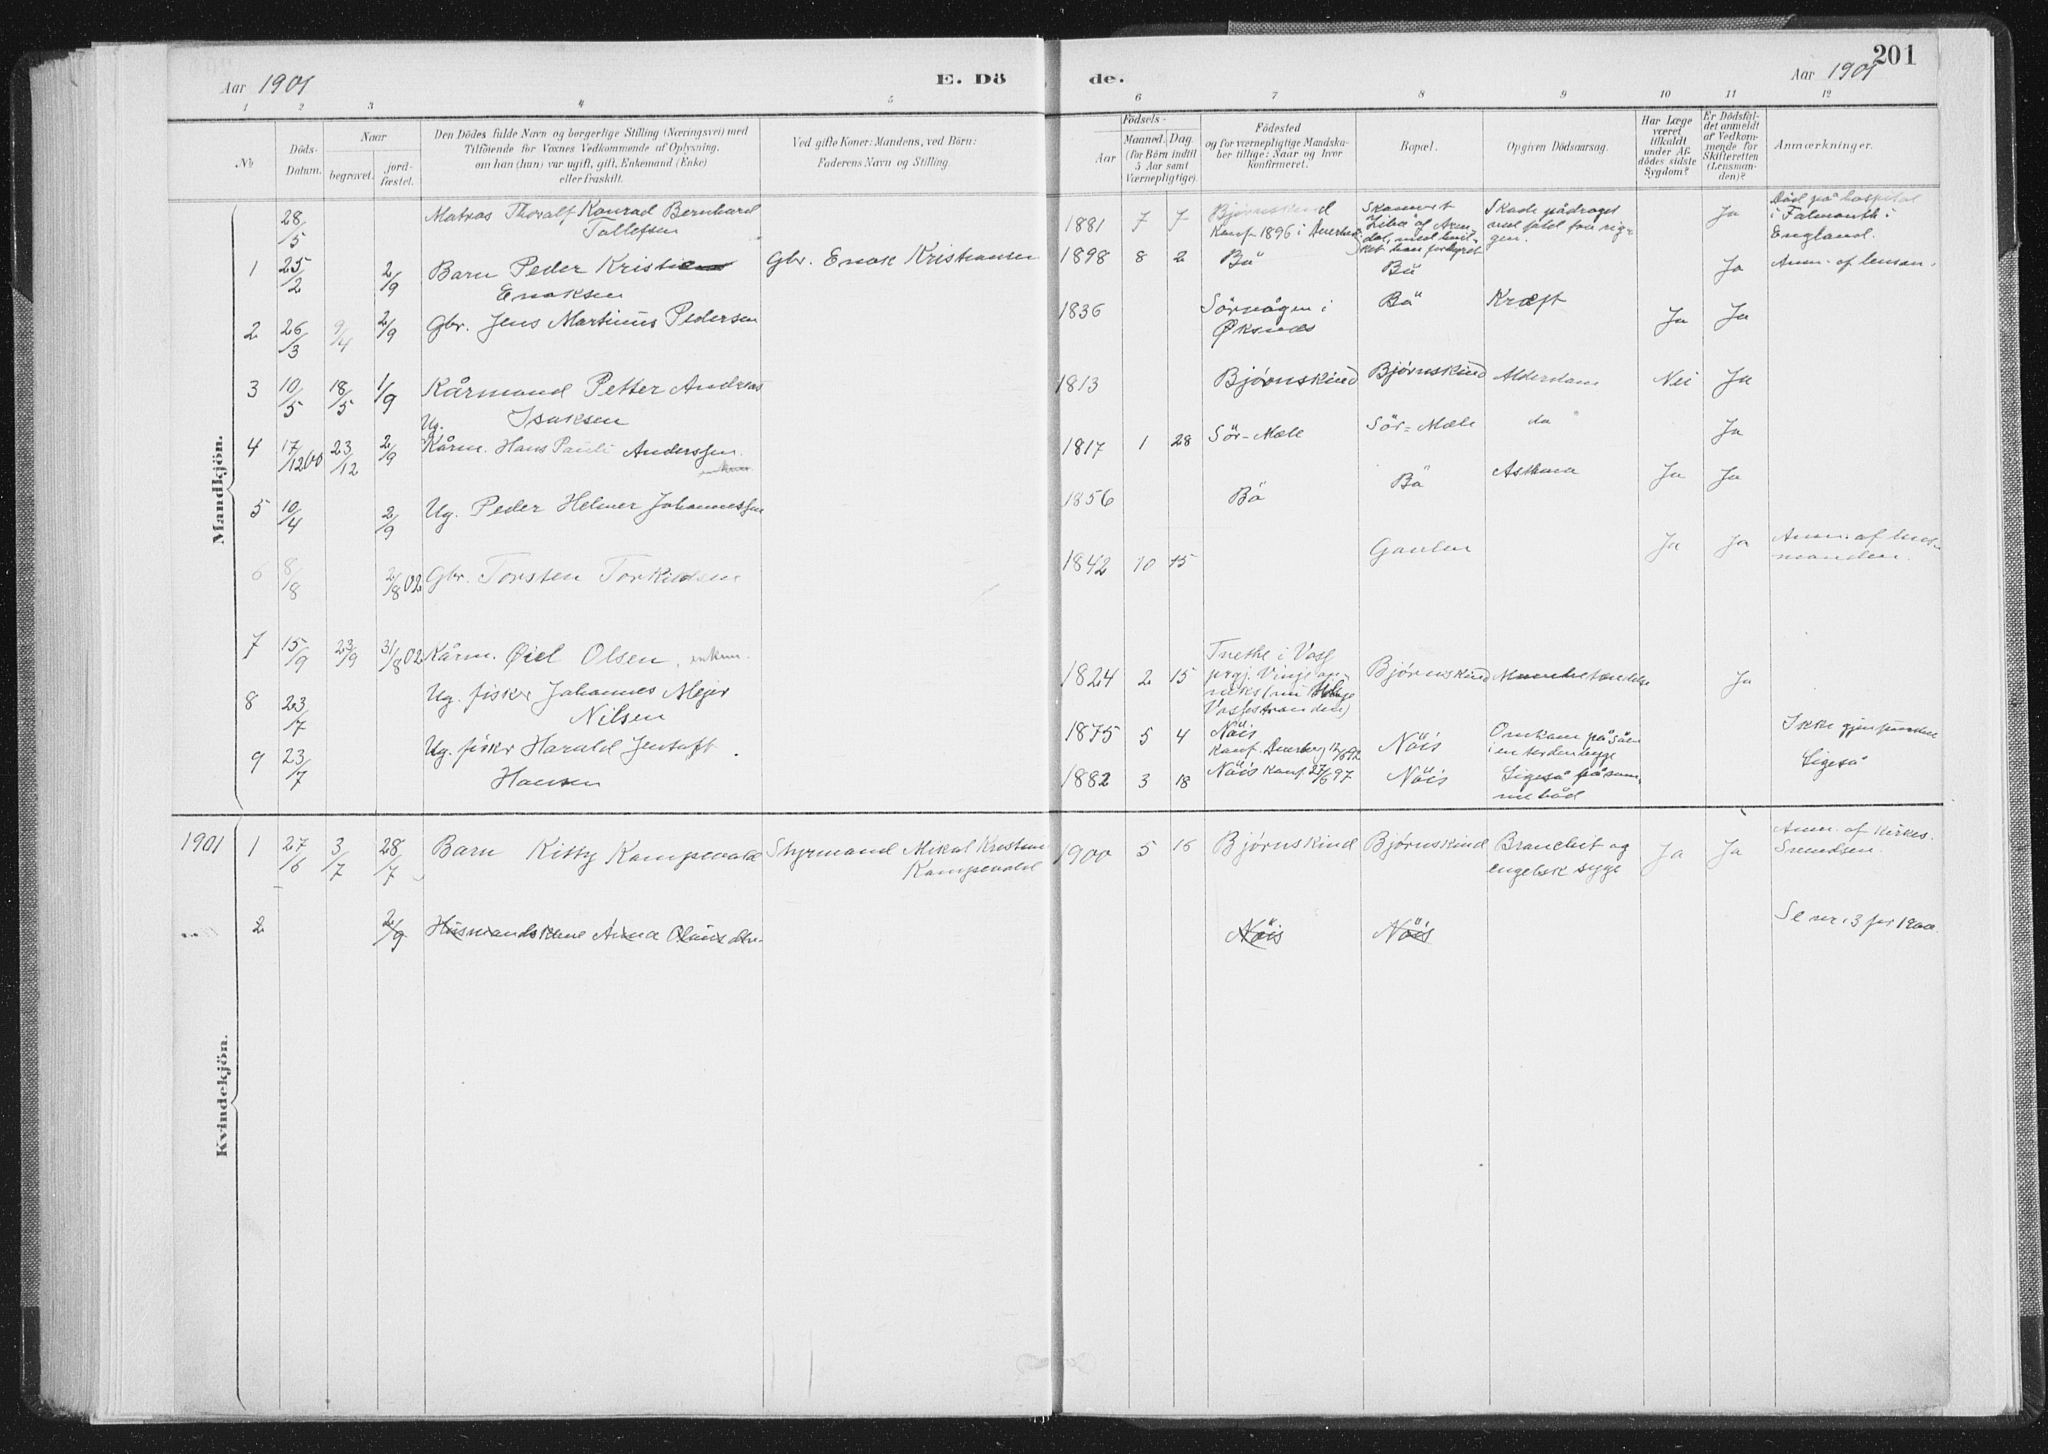 201
Aar 1901
E. Dö
de.
Aar 1901
1 2 3 4 5 6 7 8 9 10 11 12
No
Döds-
Datum.
Naar
begravet.
jord-
fæstet.
Den Dödes fulde Navn og borgerlige Stilling (Næringsvei) med
Tilföiende for Voxnes Vedkommende af Oplysning,
om han (hun) var ugift, gift, Enkemand (Enke)
eller fraskilt.
Ved gifte Koner: Mandens, ved Börn:
Faderens Navn og Stilling.
Födsels-
Aar
Maaned. Dag.
(for Börn indtil
5 Aar samt
Værnepligtige).
Födested
og for værnepligtige Mandska-
ber tillige: Naar og hvor
konfirmeret.
Bopæl.
Opgiven Dödsaarsag.
Har Læge
været
tilkaldt
under Af-
dödes sidste
Sygdom?
Er Dödsfal-
det anmeldt
af Vedkom-
mende for
Skifteretten
(Lensman-
den)?
Anmærkninger.
Mandkjön.
28/5 Matros Thoralf Konrad Bernhard
Tollefsen
1881 7 7 Bjørnskind
Konf. 1896 i
Skade pådraget
ved fald fra rig-
gen.
Ja
Død på hospital
i Falmouth i
England.
1 25/2 2/9 Barn Peder Kristian
Enoksen
Gbr. Enok Kristiansen 1898 8 2 Bö Bö Ja Anm. af lensm.
2 26/3 9/4 2/9 Gbr. Jens Martinus Pedersen 1836 Sörvågen i
Øksnæs
Bö Kræft Ja Ja
3 10/5 18/5 1/9 Kårmand Petter Andreas
Isaksen
1813 Bjørnskind Bjørnskind Alderdom Nei Ja
Ug.
4 17/12 00 23/12 2/9 Kårm. Hans Pauli Anderssen 1817 1 28 Sör-Mæle Sör-Mæle do Ja
5 10/4 2/9 Ug. Peder Helmer Johannessen 1856 Bö Bö Asthma Ja Ja
6 8/8 2/8 02 Gbr. Torsten Torkildsen 1842 10 15 Gaulen Ja Ja Anm. af lens-
manden.
7 15/9 23/9 31/8 02 Kårm. Øiel Olsen, enkem. 1824 2 15
Bjørnskind Ja
8 23/7 Ug. fisker Johannes Mejer
Nilsen
1875 5 4 Nöis
Nöis Omkom på söen
i en tordenbyge
Ikke gjenfunden
9 23/7 Ug. fisker Harald Jentoft
Hansen
1882 3 18 Nöis konf. 27/6 97 Nöis Ligeså på sam-
me båd
Ligeså
Kvindekjön.
1901 1 27/6 3/7 28/7 Barn Kitty Kampevold Styrmand Mikal Kristian
Kampevold
1900 5 16 Bjørnskind Bjørnskind Bronchit og
engelsk syge
Ja Ja Anm. af kirkes.
Svendsen.
2 2/9 Husmandskone Anna Olausdtr. Nöis Nöis Se nr. 3 for 1900.